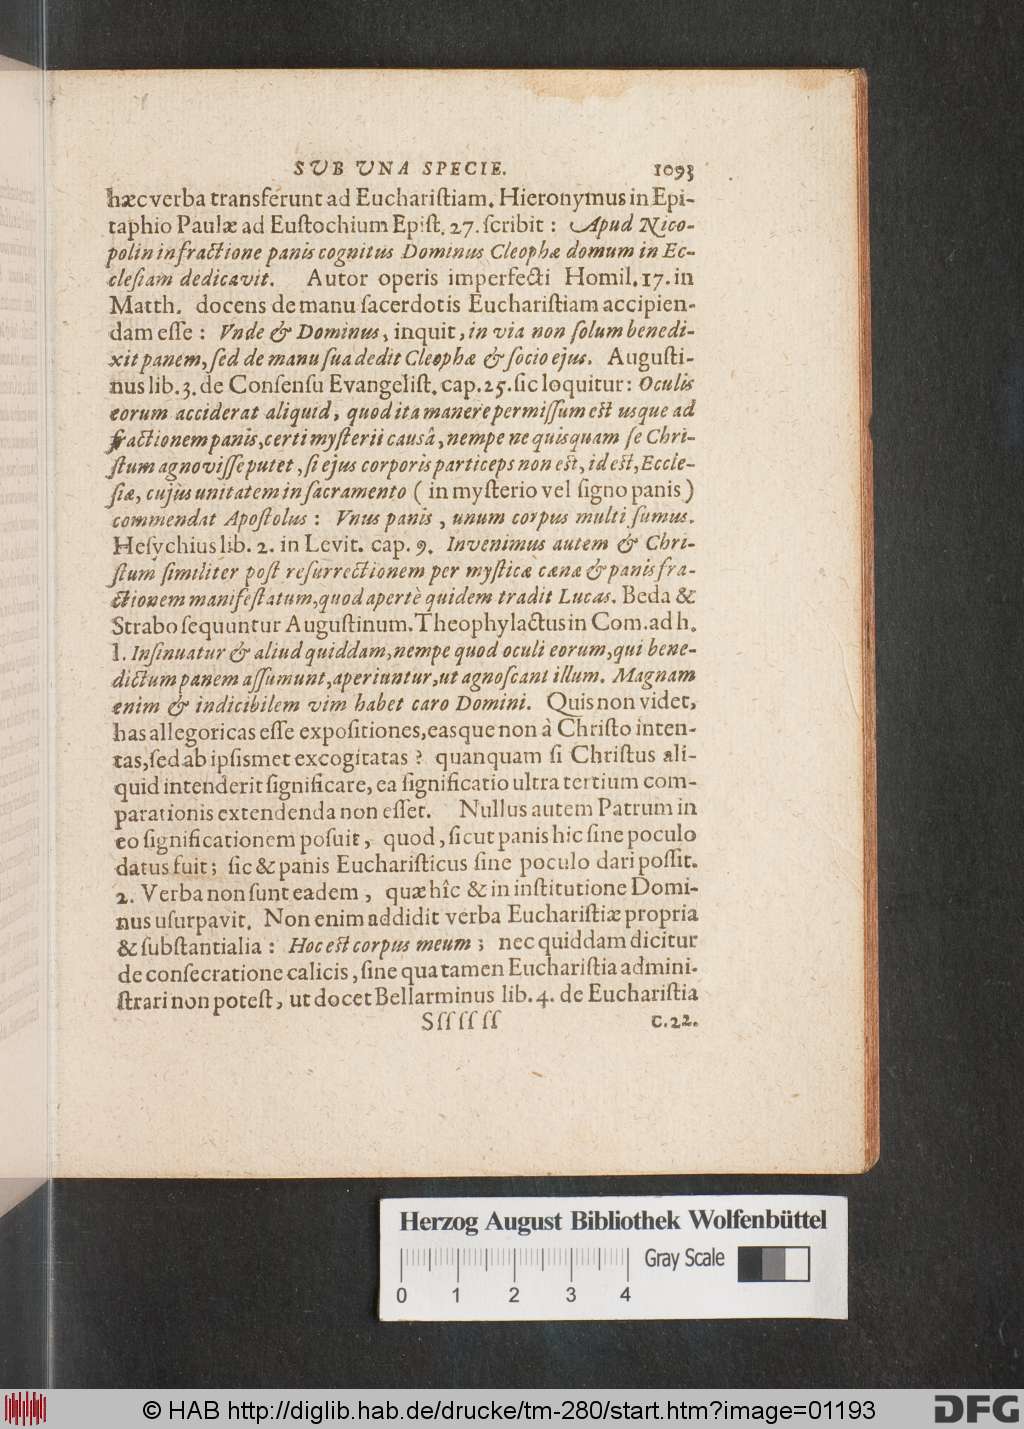 SUB UNA SPECIE. 1093
hæc verba transferunt ad Euchariſtiam. Hieronymus in Epi-
taphio Paulæ ad Euſtochium Epiſt. 27. ſcribit : Apud Nico-
polin in fractione panis cognitus Dominus Cleophæ domum in Ec-
cleſiam dedicavit. Autor operis imperfecti Homil. 17. in
Matth. docens de manu ſacerdotis Euchariſtiam accipien-
dam eſſe : Vnde & Dominus, inquit, in via non ſolum benedi-
xit panem, ſed de manu ſua dedit Cleophæ & ſocio ejus. Auguſti-
nus lib. 3. de Conſenſu Evangeliſt. cap. 25. ſic loquitur : Oculis
eorum acciderat aliquid, quod ita manere permiſſum eſt usque ad
fractionem panis, certi myſterii causâ, nempe ne quisquam ſe Chri-
ſtum agnoviſſe putet, ſi ejus corporis particeps non eſt, id eſt, Eccle-
ſiæ, cujus unitatem in ſacramento ( in myſterio vel ſigno panis )
commendat Apoſtolus : Vnus panis, unum corpus multi ſumus.
Heſychius lib. 2. in Levit. cap. 9. Invenimus autem & Chri-
ſtum ſimiliter poſt reſurrectionem per myſticæ cænæ & panis fra-
ctionem manifeſtatum, quod apertè quidem tradit Lucas. Beda &
Strabo ſequuntur Auguſtinum. Theophylactus in Com. ad h.
l. Inſinuatur & aliud quiddam, nempe quod oculi eorum, qui bene-
dictum panem aſſumunt, aperiuntur, ut agnoſcant illum. Magnam
enim & indicibilem vim habet caro Domini. Quis non videt,
has allegoricas eſſe expoſitiones, easque non à Chriſto inten-
tas, ſed ab ipſismet excogitatas ? quanquam ſi Chriſtus ali-
quid intenderit ſignificare, ea ſignificatio ultra tertium com-
parationis extendenda non eſſet. Nullus autem Patrum in
eo ſignificationem poſuit, quod, ſicut panis hic ſine poculo
datus fuit ; ſic & panis Euchariſticus ſine poculo dari poſſit.
2. Verba non ſunt eadem, quæ hîc & in inſtitutione Domi-
nus uſurpavit. Non enim addidit verba Euchariſtiæ propria
& ſubſtantialia : Hoc eſt corpus meum ; nec quiddam dicitur
de conſecratione calicis, ſine qua tamen Euchariſtia admini-
ſtrari non poteſt, ut docet Bellarminus lib. 4. de Euchariſtia
Sſſ ſſ ſſ c. 22.
Herzog August Bibliothek Wolfenbüttel
Gray Scale
0 1 2 3 4
© HAB http://diglib.hab.de/drucke/tm-280/start.htm?image=01193
DFG